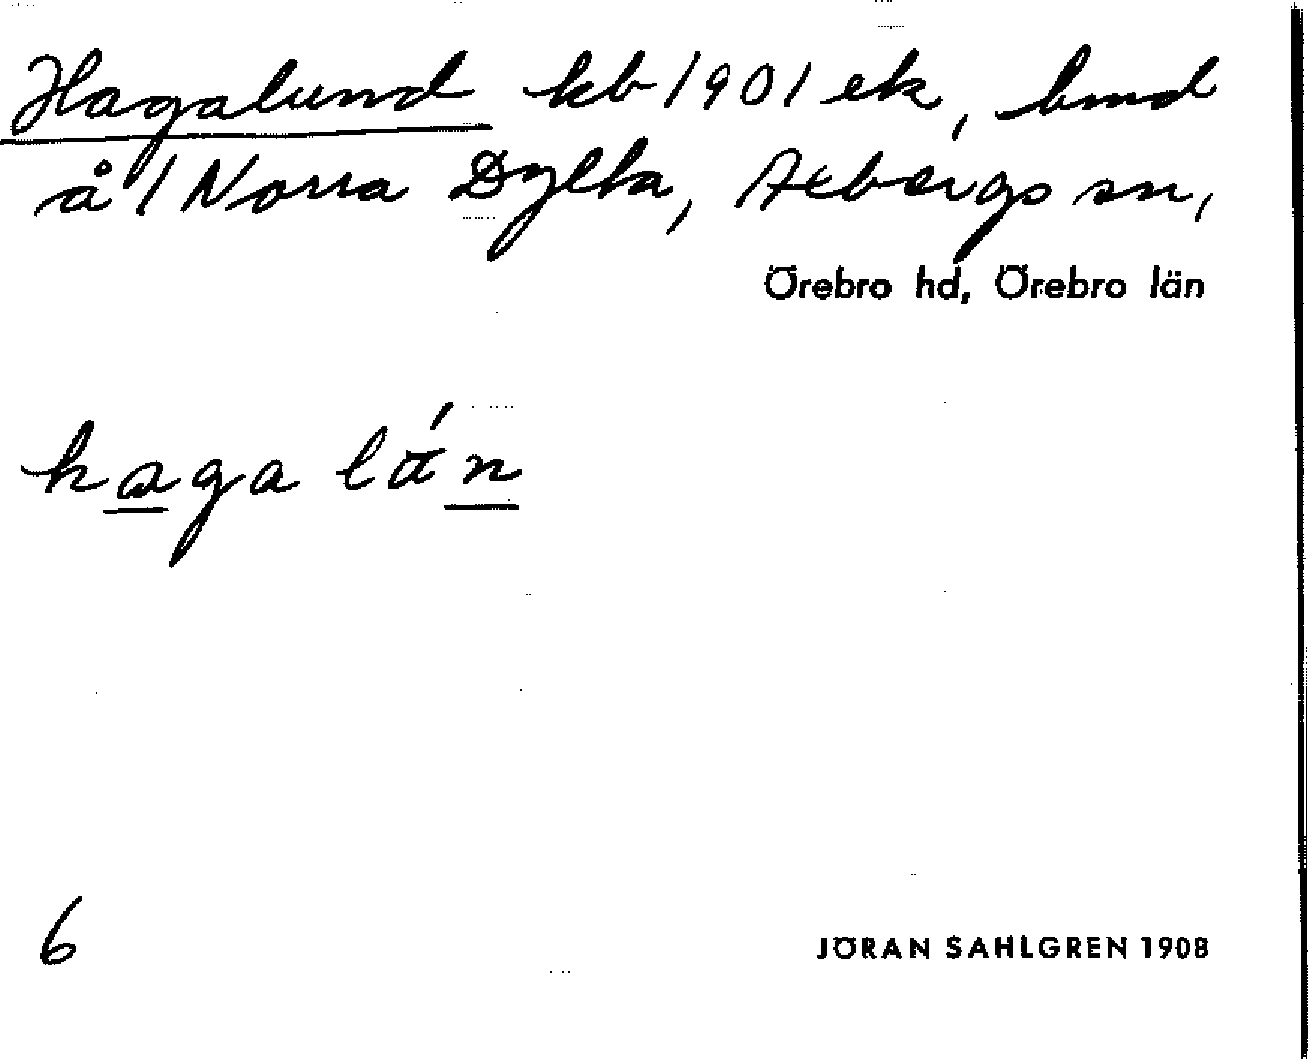 Hagalund kb 1901 ek, bmd
å 1 Norra Dylta, Axbergs sn,
Örebro hd, Örebro län
haga lán
6
JÖRAN SAHLGREN 1908